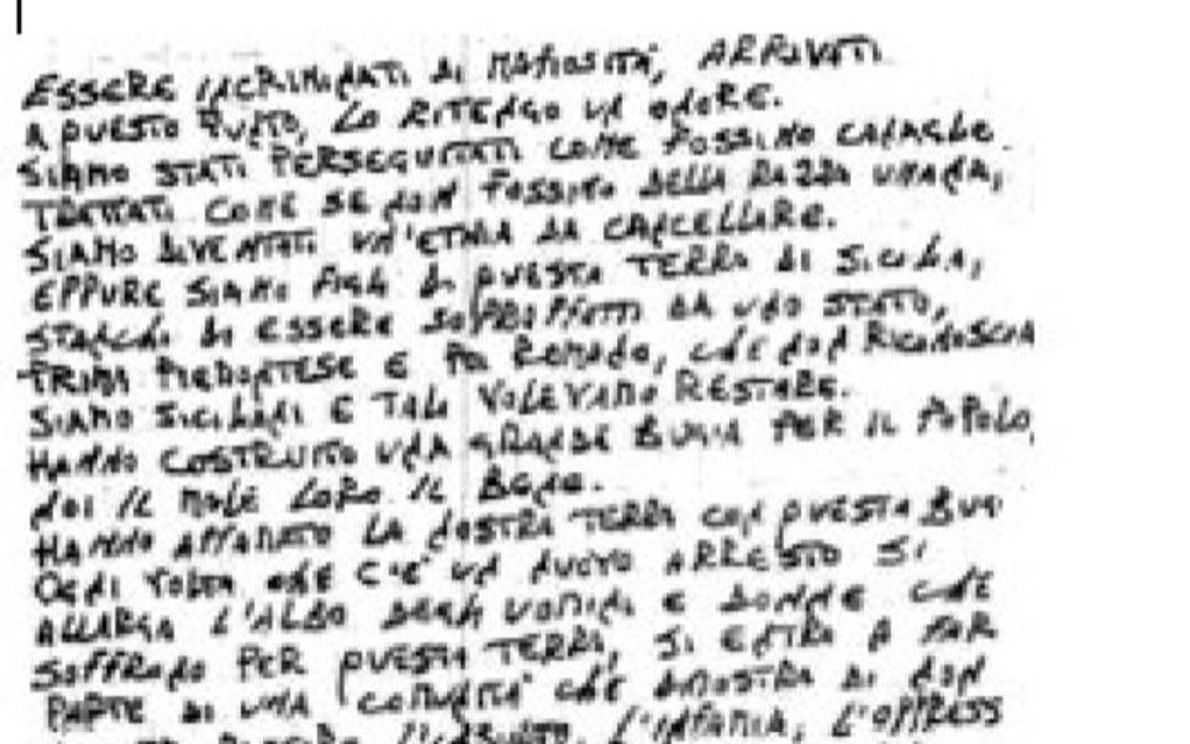 ESSERE INCRIMINATI DI MAFIOSITÀ, ARRIVATI
A QUESTO PUNTO, LO RITENGO UN ONORE.
SIAMO STATI PERSEGUITATI COME FOSSIMO CANAGLIE
TRATTATI COME SE NON FOSSIMO DELLA RAZZA UMANA,
SIAMO DIVENTATI UN'ETNIA DA CANCELLARE.
EPPURE SIAMO FIGLI DI QUESTA TERRA DI SICILIA,
STANCHI DI ESSERE SOPRAFFATTI DA UNO STATO,
PRIMA PIEMONTESE E POI ROMANO, CHE NON RICONOSCIA
SIAMO SICILIANI E TALI VOLEVAMO RESTARE.
HANNO COSTRUITO UNA GRANDE BUGIA PER IL POPOLO,
NOI IL MALE LORO IL BENE.
HANNO AFFAMATO LA NOSTRA TERRA CON QUESTA BUG
OGNI VOLTA CHE C'È UN NUOVO ARRESTO SI
ALLARGA L'ALBO DEGLI UOMINI E DONNE CHE
SOFFRONO PER QUESTA TERRA, SI ENTRA A FAR
PARTE DI UNA COMUNITÀ CHE DIMOSTRA DI NON
L'INSULTO, L'INFAMIA, L'OPPRESS